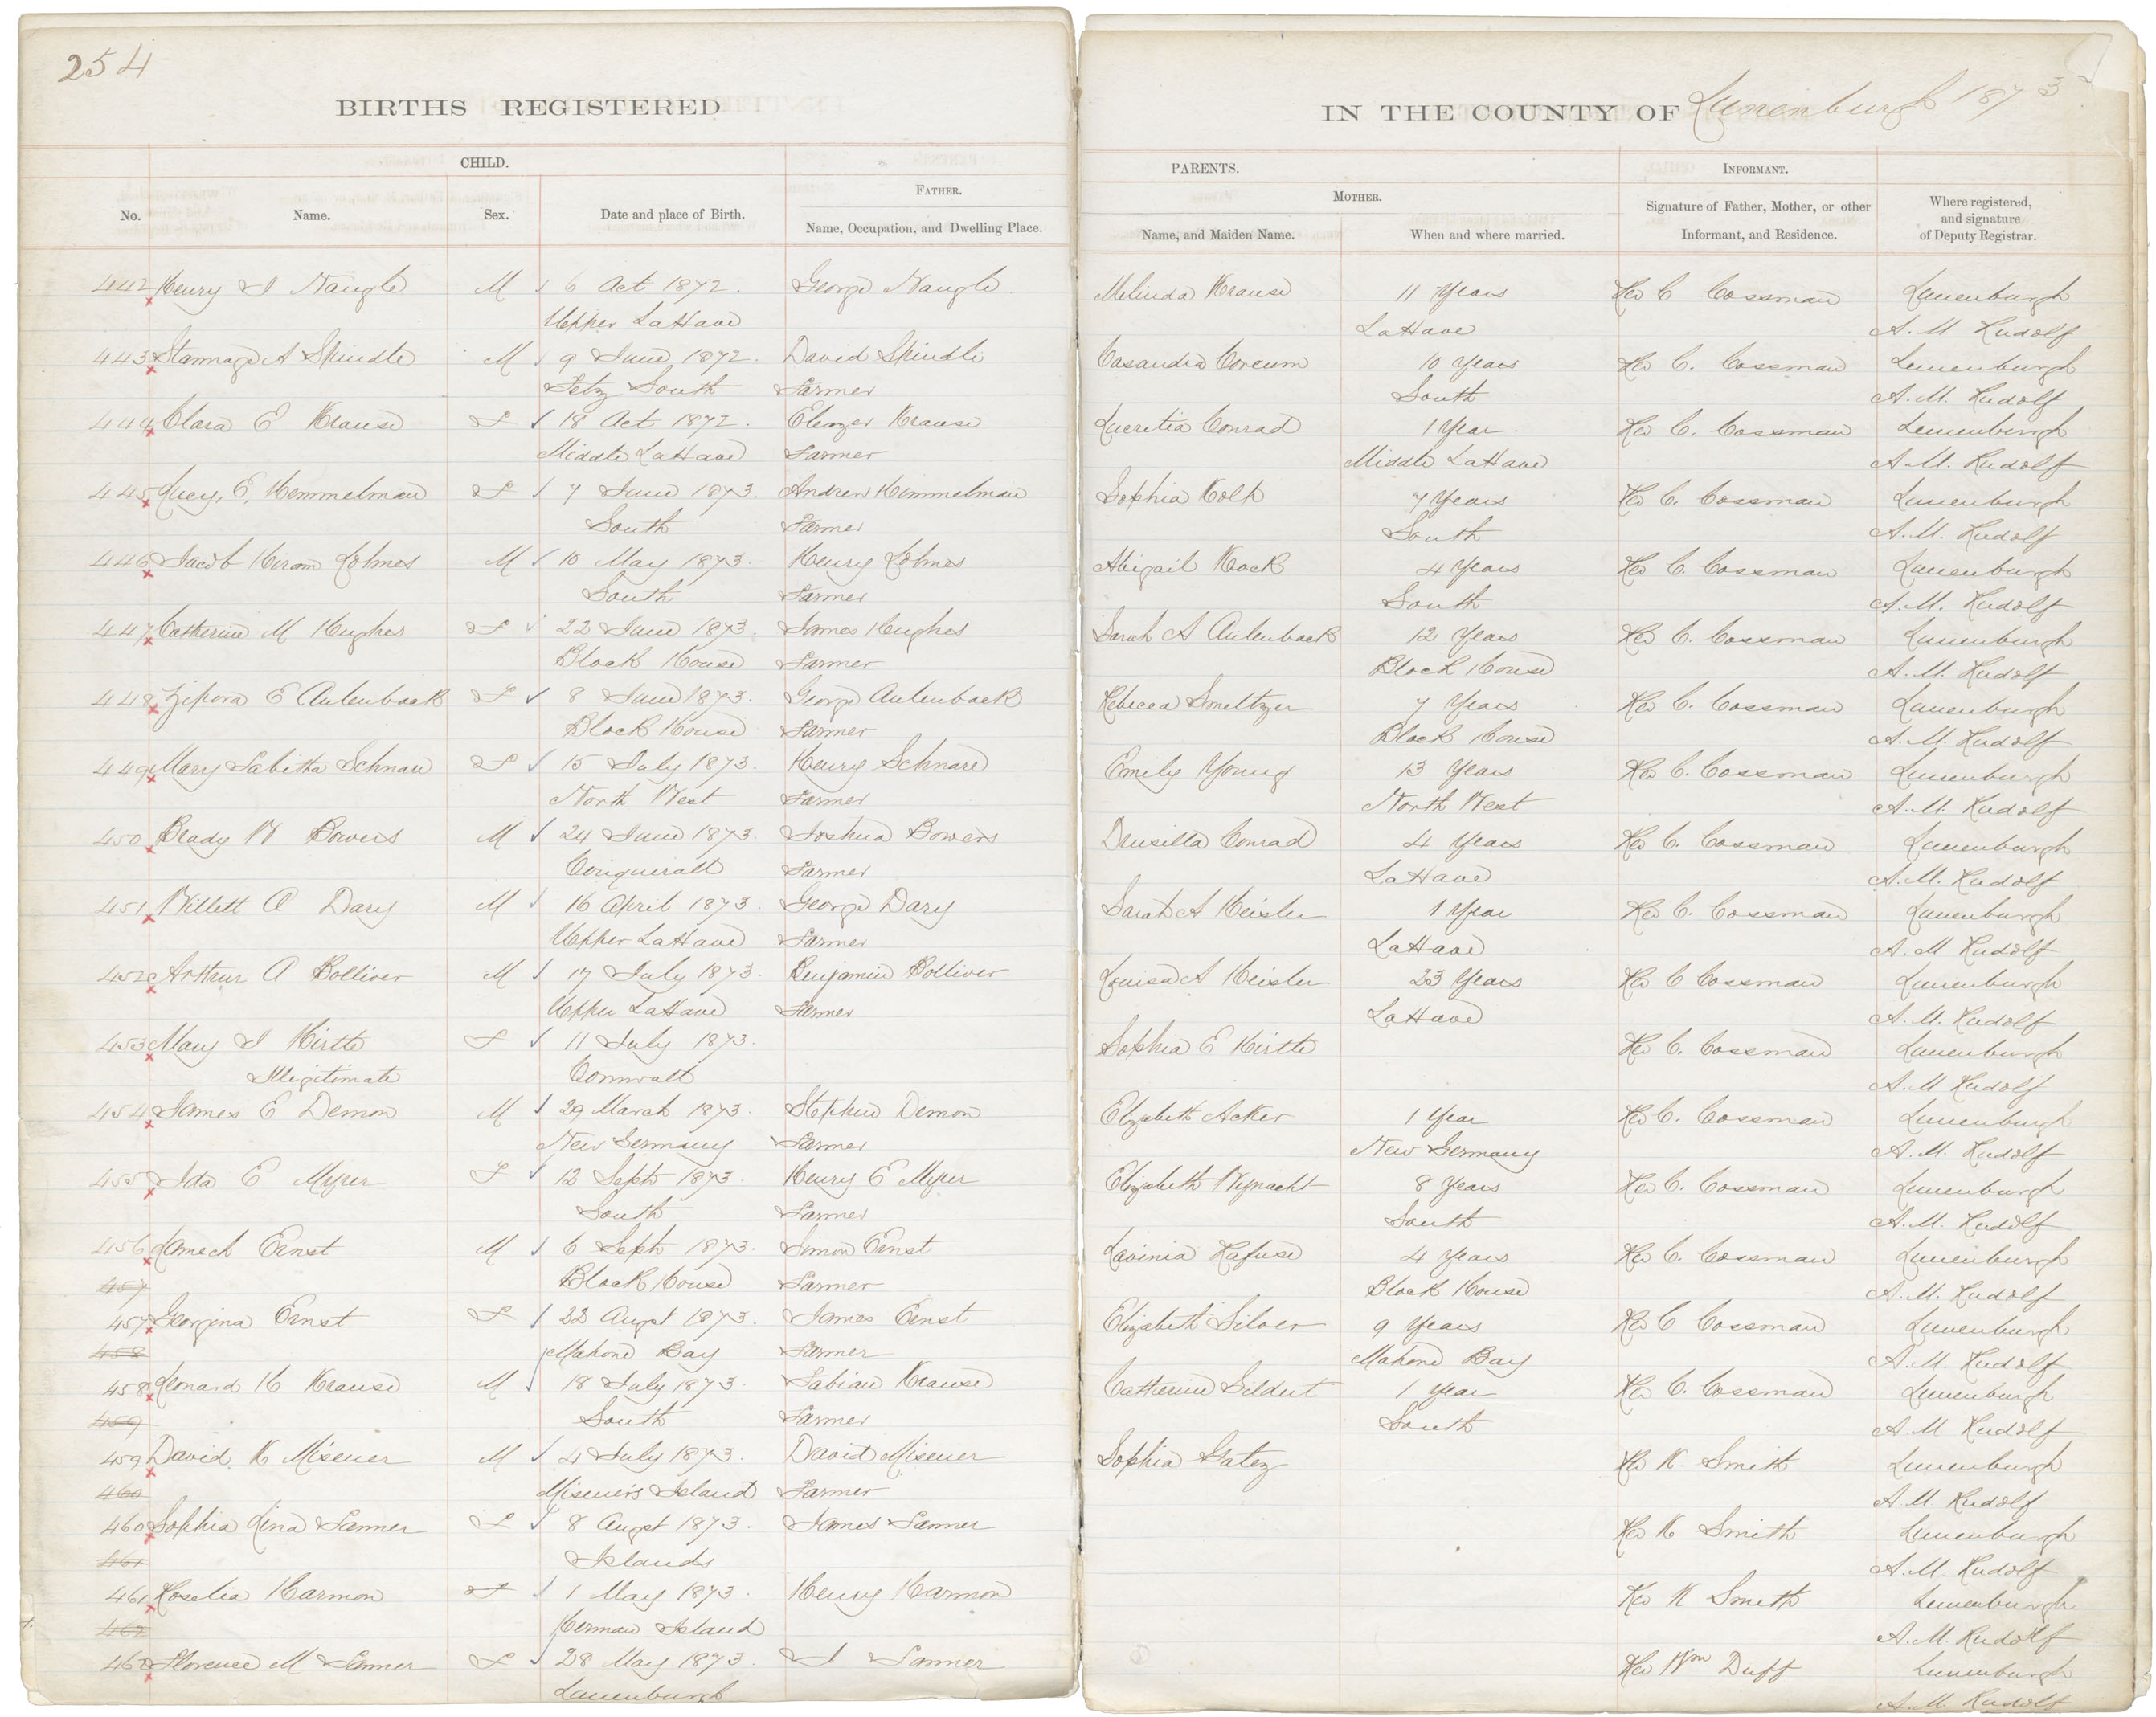 254
BIRTHS REGISTERED
IN THE COUNTY OF Lunenburgh 1873
CHILD.
PARENTS.
INFORMANT.
FATHER.
MOTHER.
No.
Name.
Sex.
Date and place of Birth.
Name, Occupation, and Dwelling Place.
Name, and Maiden Name.
When and where married.
Signature of Father, Mother, or other
Informant, and Residence.
Where registered,
and signature
of Deputy Registrar.
442 Henry I Naugle M 6 Oct 1872. George Naugle Melinda Krause 11 Years Rev C Cossman Lunenburgh
Upper LaHave LaHave A. M Rudolf
443 Stannage A Spindle M 9 June 1872. David Spindle Casandra Corcum 10 Years Rev C. Cossman Lunenburgh
Fetz South Farmer South A. M. Rudolf
444 Clara E Krause F 18 Oct 1872. Eleazer Krause Lucretia Conrad 1 Year Rev C. Cossman Lunenburgh
Middle LaHave Farmer Middle LaHave A. M. Rudolf
445 Lucy. E. Hemmelman F 7 June 1873. Andrew Hemmelman Sophia Kolp 7 Years Rev C. Cossman Lunenburgh
South Farmer South A. M. Rudolf
446 Jacob Hiram Lohnes M 10 May 1873. Henry Lohnes Abigail Kock 4 Years Rev C. Cossman Lunenburgh
South Farmer South A. M. Rudolf
447 Catherine M Hughes F 22 June 1873. James Hughes Sarah A Aulenback 12 Years Rev C. Cossman Lunenburgh
Block House Farmer Block House A. M. Rudolf
448 Zipora E Aulenback F 8 June 1873. George Aulenback Rebecca Smeltzer 7 Years Rev C. Cossman Lunenburgh
Block House Farmer Block House A. M. Rudolf
449 Mary Tabitha Schnare F 15 July 1873. Henry Schnare Emily Young 13 Years Rev C. Cossman Lunenburgh
North West Farmer North West A. M. Rudolf
450 Brady W Bowers M 24 June 1873. Joshua Bowers Drusilla Conrad 4 Years Rev C. Cossman Lunenburgh
Conquerall Farmer LaHave A. M. Rudolf
451 Willett A Dary M 16 April 1873. George Dary Sarah A Heisler 1 Year Rev C. Cossman Lunenburgh
Upper LaHave Farmer LaHave A. M Rudolf
452 Arthur A Bolliver M 17 July 1873. Benjamin Bolliver Louisa A Heisler 23 Years Rev C Cossman Lunenburgh
Upper LaHave Farmer LaHave A. M. Rudolf
453 Mary I Hirtle F 11 July 1873. Sophia E Hirtle Rev C. Cossman Lunenburgh
Illegitimate Cornwall A. M Rudolf
454 James E Demon M 29 March 1873. Stephen Demon Elizabeth Acker 1 Year Rev C. Cossman Lunenburgh
New Germany Farmer New Germany A. M. Rudolf
455 Ida E Myrer F 12 Septr 1873. Henry E Myrer Elizabeth Wynacht 8 Years Rev C. Cossman Lunenburgh
South Farmer South A. M. Rudolf
456 Lamech Ernst M 6 Septr 1873. Simon Ernst Lavinia Rafuse 4 Years Rev C. Cossman Lunenburgh
457 Block House Farmer Block House A. M. Rudolf
457 Georgina Ernst F 22 Augst 1873. James Ernst Elizabeth Silver 9 Years Rev C Cossman Lunenburgh
458 Mahone Bay Farmer Mahone Bay A. M. Rudolf
458 Leonard H Krause M 18 July 1873. Fabian Krause Catherine Gildert 1 Year Rev C. Cossman Lunenburgh
459 South Farmer South A. M Rudolf
459 David. K Misener M 4 July 1873. David Misener Sophia Gatez Rev H. Smith Lunenburgh
460 Misener's Island Farmer A. M Rudolf
460 Sophia Lina Sarner F 8 Augst 1873. James Sarner Rev H Smith Lunenburgh
461 Islands A. M. Rudolf
461 Roselia Harmon F 1 May 1873. Henry Harmon Rev H Smith Lunenburgh
462 Herman Island A. M. Rudolf
462 Florence M Sarner F 28 May 1873. J Sarner Rev Wm Duff Lunenburgh
Lunenburgh A. M. Rudolf